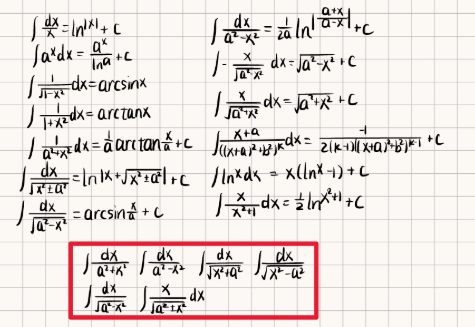 ∫ dx/x = ln|x| + C
∫ aˣdx = aˣ/lna + C
∫ 1/√(1-x²) dx = arcsinx
∫ 1/(1+x²) dx = arctanx
∫ 1/(a²+x²) dx = 1/a arctan x/a + C
∫ dx/√(x²±a²) = ln|x+√(x²±a²)| + C
∫ dx/√(a²-x²) = arcsin x/a + C
∫ dx/(a²-x²) = 1/2a ln|(a+x)/(a-x)| + C
∫ - x/√(a²-x²) dx = √(a²-x²) + C
∫ x/√(a²+x²) dx = √(a²+x²) + C
∫ (x+a)/((x+a)²+b²)ᵏ dx = -1/(2(k-1)((x+a)²+b²)ᵏ⁻¹) + C
∫ lnx dx = x(lnx-1) + C
∫ x/(x²+1) dx = 1/2 ln x²+1 + C
∫ dx/(a²+x²) ∫ dx/(a²-x²) ∫ dx/√(x²+a²) ∫ dx/√(x²-a²)
∫ dx/√(a²-x²) ∫ x/√(a²±x²) dx